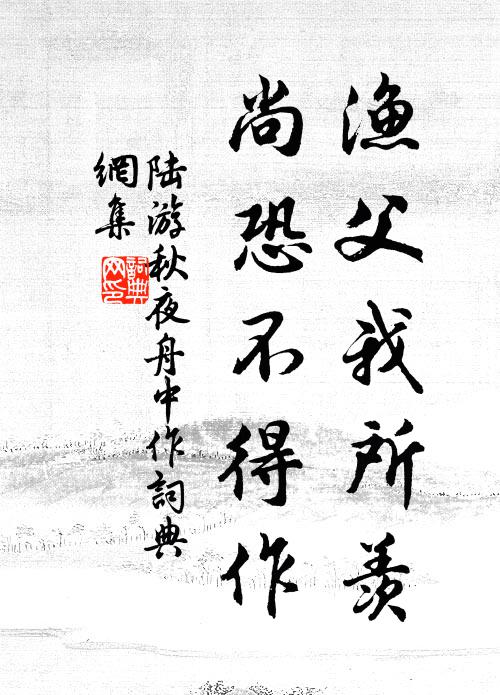 渔父我所羨
尚恐不得作
陆游秋夜舟中作詞典
網集
詞典网印